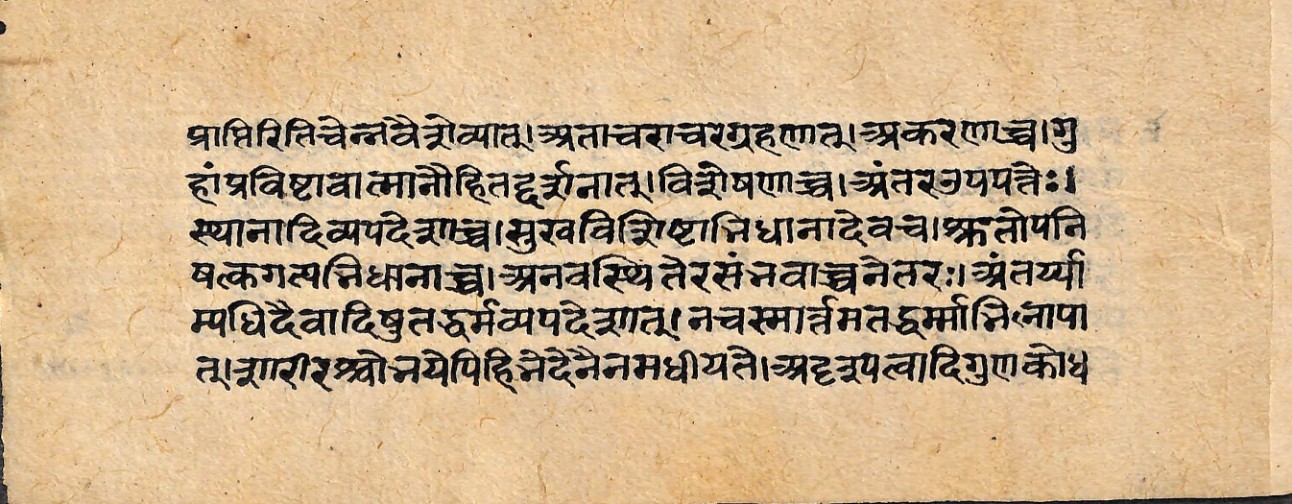 प्राप्तिरितिचेन्नवैशेष्यात्।अत्ताचराचरग्रहणात्।प्रकरणाच्च।गु
हांप्रविष्टावात्मानौहितद्दर्शनात्।विशेषणाच्च।अंतरउपपत्तेः।
स्थानादिव्यपदेशाच्च।सुखविशिष्टाभिधानादेवच।श्रुतोपनि
षत्कगत्यभिधानाच्च।अनवस्थितेरसंभवाच्चनेतरः।अंतर्य्या
म्यधिदैवादिषुतद्धर्मव्यपदेशात्।नचस्मार्त्तमतद्धर्म्माभिलापा
त्।शारीरश्चोभयेपिहिभेदेनैनमधीयते।अदृश्यत्वादिगुणकोध